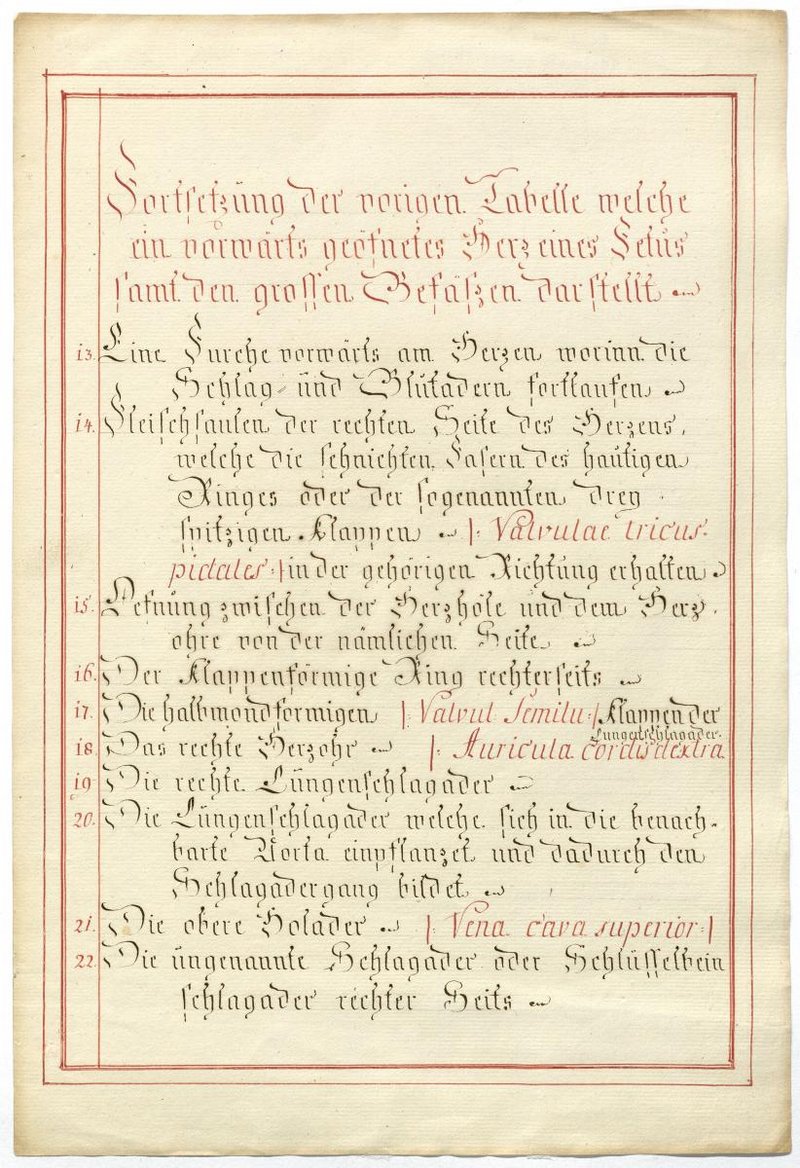 Fortsetzŭng der vorigen Tabelle welche
ein vorwärts geöfnetes Herz eines Fetŭs
samt den grossen Gefäßen darstellt
13. Eine Furche vorwärts am Herzen worinn die
Schlag- ŭnd Blŭtadern fortlaufen
14. Fleischsaulen der rechten Seite des Herzens,
welche die sehnichten Fasern des hautigen
Ringes oder der sogenannten drey
spitzigen Klappen |: Valvulae tricus-
pidales :| in der gehörigen Richtŭng erhalten
15. Oefnŭng zwischen der Herzhöle ŭnd dem Herz-
ohre von der nämlichen Seite
16. Der Klappenförmige Ring rechterseits
17. Die halbmondformigen |: Valvul Semilu :| Klappen der
Lungenschlagader.
18. Das rechte Herzohr |: Auricula cordis dextra
19 Die rechte Lŭngenschlagader
20. Die Lŭngenschlagader welche sich in die benach-
barte Aorta einpflanzet und dadurch den
Schlagadergang bildet
21. Die obere Holader |: Vena cava superior :|
22. Die ŭngenannte Schlagader oder Schlüsselbein
schlagader rechter Seits